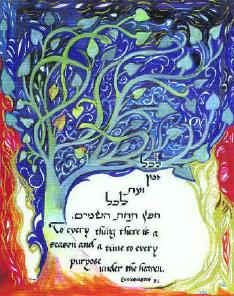 לכל
זמן
ועת
לכל
חפץ תחת השמים.
To every thing there is a
season and a time to every
purpose
under the heaven.
Ecclesiastes